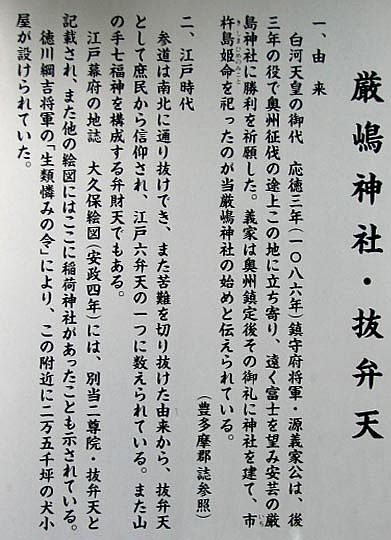 厳嶋神社・抜弁天
一、由来
白河天皇の御代　応徳三年(一〇八六年)鎮守府将軍・源義家公は、後
三年の役で奥州征伐の途上この地に立ち寄り、遠く富士を望み安芸の厳
島神社に勝利を祈願した。義家は奥州鎮定後その御礼に神社を建て、市
杵島姫命を祀ったのが当厳嶋神社の始めと伝えられている。
(豊多摩郡誌参照)
二、江戸時代
参道は南北に通り抜けでき、また苦難を切り抜けた由来から、抜弁天
として庶民から信仰され、江戸六弁天の一つに数えられている。また山
の手七福神を構成する弁財天でもある。
江戸幕府の地誌　大久保絵図(安政四年)には、別当二尊院・抜弁天と
記載され、また他の絵図にはここに稲荷神社があったことも示されている。
徳川綱吉将軍の「生類憐みの令」により、この附近に二万五千坪の犬小
屋が設けられていた。